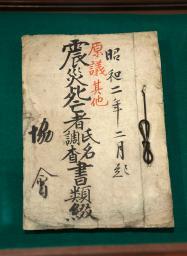 昭和二年二月起
原議其他
震災死亡者氏名調査書類綴
協会